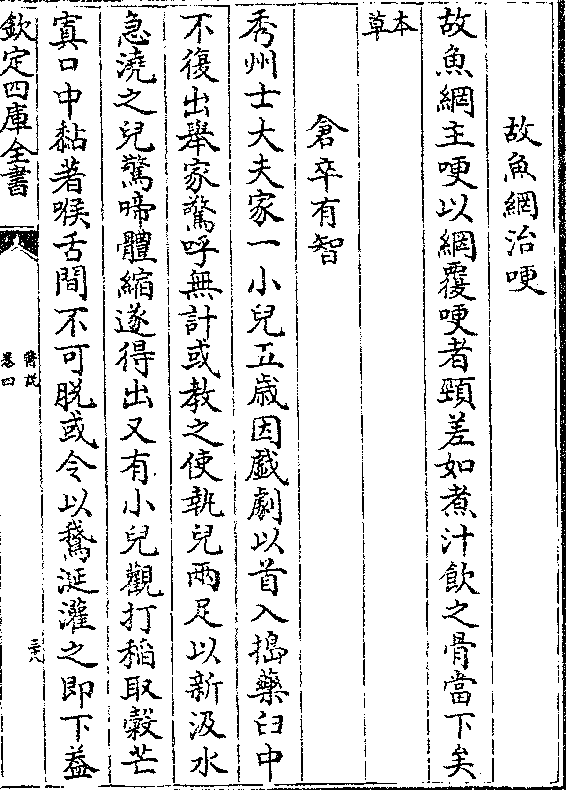 故魚網治哽
故魚網主哽以網覆哽者頸差如煮汁飲之骨當下矣
本草
倉卒有智
秀州士大夫家一小兒五歲因戲劇以首入搗藥臼中
不復出舉家驚呼無計或教之使執兒兩足以新汲水
急澆之兒驚啼體縮遂得出又有小兒觀打稻取穀芒
寘口中黏著喉舌間不可脱或令以鵞涎灌之即下蓋
欽定四庫全書
醫說
卷四